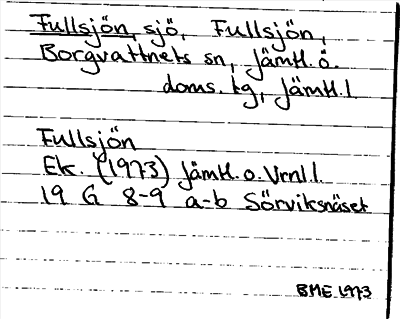 Fullsjön, sjö, Fullsjön,
Borgvattnets sn, Jämtl. ö.
doms. tg, Jämtl. l
Fullsjön
Ek. (1973) Jämtl. o. Vrnl l.
19 G 8-9 a-b Sörviksnäset
BME 1973